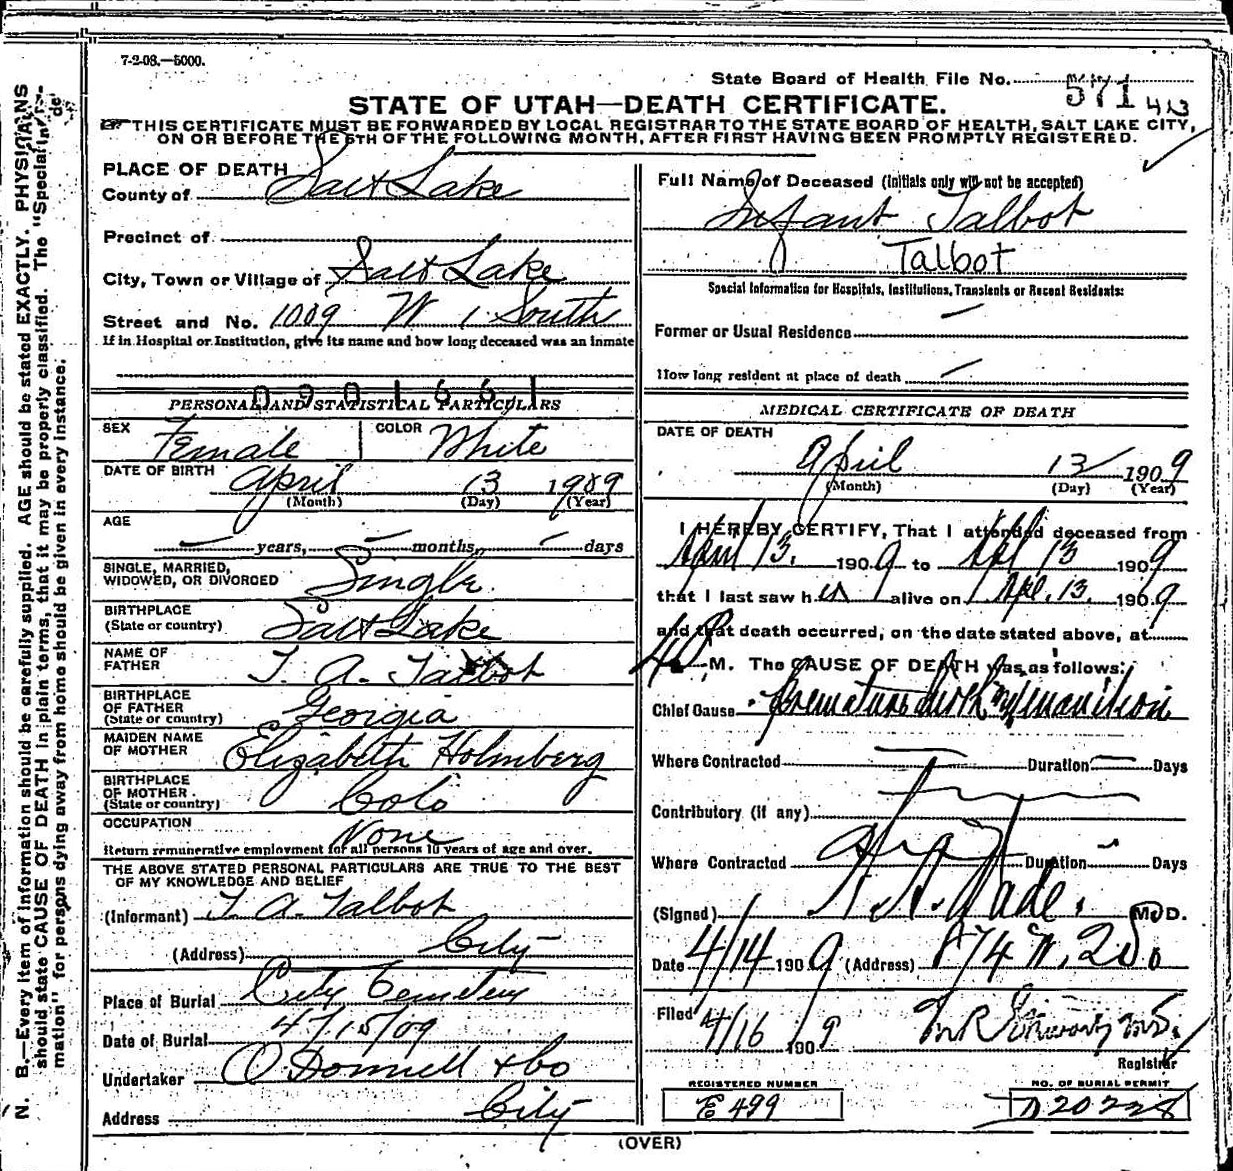 7-2-08.—5000.
State Board of Health File No. 571
STATE OF UTAH—DEATH CERTIFICATE.
THIS CERTIFICATE MUST BE FORWARDED BY LOCAL REGISTRAR TO THE STATE BOARD OF HEALTH, SALT LAKE CITY,
ON OR BEFORE THE 5TH OF THE FOLLOWING MONTH, AFTER FIRST HAVING BEEN PROMPTLY REGISTERED.
PLACE OF DEATH
County of Salt Lake
Precinct of
City, Town or Village of Salt Lake
Street and No. 1009 W 1 South
If in Hospital or Institution, give its name and how long deceased was an inmate
0901661
PERSONAL AND STATISTICAL PARTICULARS
SEX Female COLOR White
DATE OF BIRTH April 13 1909
(Month) (Day) (Year)
AGE
— years, — months, — days
SINGLE, MARRIED,
WIDOWED, OR DIVORCED Single
BIRTHPLACE
(State or country) Salt Lake
NAME OF
FATHER T. A. Talbot
BIRTHPLACE
OF FATHER
(State or country) Georgia
MAIDEN NAME
OF MOTHER Elizabeth Holmberg
BIRTHPLACE
OF MOTHER
(State or country) Colo
OCCUPATION None
Return remunerative employment for all persons 10 years of age and over.
THE ABOVE STATED PERSONAL PARTICULARS ARE TRUE TO THE BEST
OF MY KNOWLEDGE AND BELIEF
(Informant) T. A. Talbot
(Address) City
Place of Burial City Cemetery
Date of Burial 4/15/09
Undertaker O'Donnell & Co
Address City
Full Name of Deceased (Initials only will not be accepted)
Infant Talbot
Talbot
Special Information for Hospitals, Institutions, Transients or Recent Residents:
Former or Usual Residence —
How long resident at place of death —
MEDICAL CERTIFICATE OF DEATH
DATE OF DEATH
April 13 1909
(Month) (Day) (Year)
I HEREBY CERTIFY, That I attended deceased from
April 13. 1909 to Apl 13 1909
that I last saw her alive on Apl. 13. 1909
and that death occurred, on the date stated above, at
4 P M. The CAUSE OF DEATH was as follows:
Chief Cause Premature birth Inanition
Where Contracted — Duration — Days
Contributory (if any)
Where Contracted Duration Days
(Signed) M. D.
Date 4/14 1909 (Address) 
Filed 4/16 1909
Registrar
REGISTERED NUMBER
E 499
NO. OF BURIAL PERMIT
D 20228
(OVER)
N. B.—Every item of information should be carefully supplied. AGE should be stated EXACTLY. PHYSICIANS
should state CAUSE OF DEATH in plain terms, that it may be properly classified. The "Special Infor-
mation" for persons dying away from home should be given in every instance.